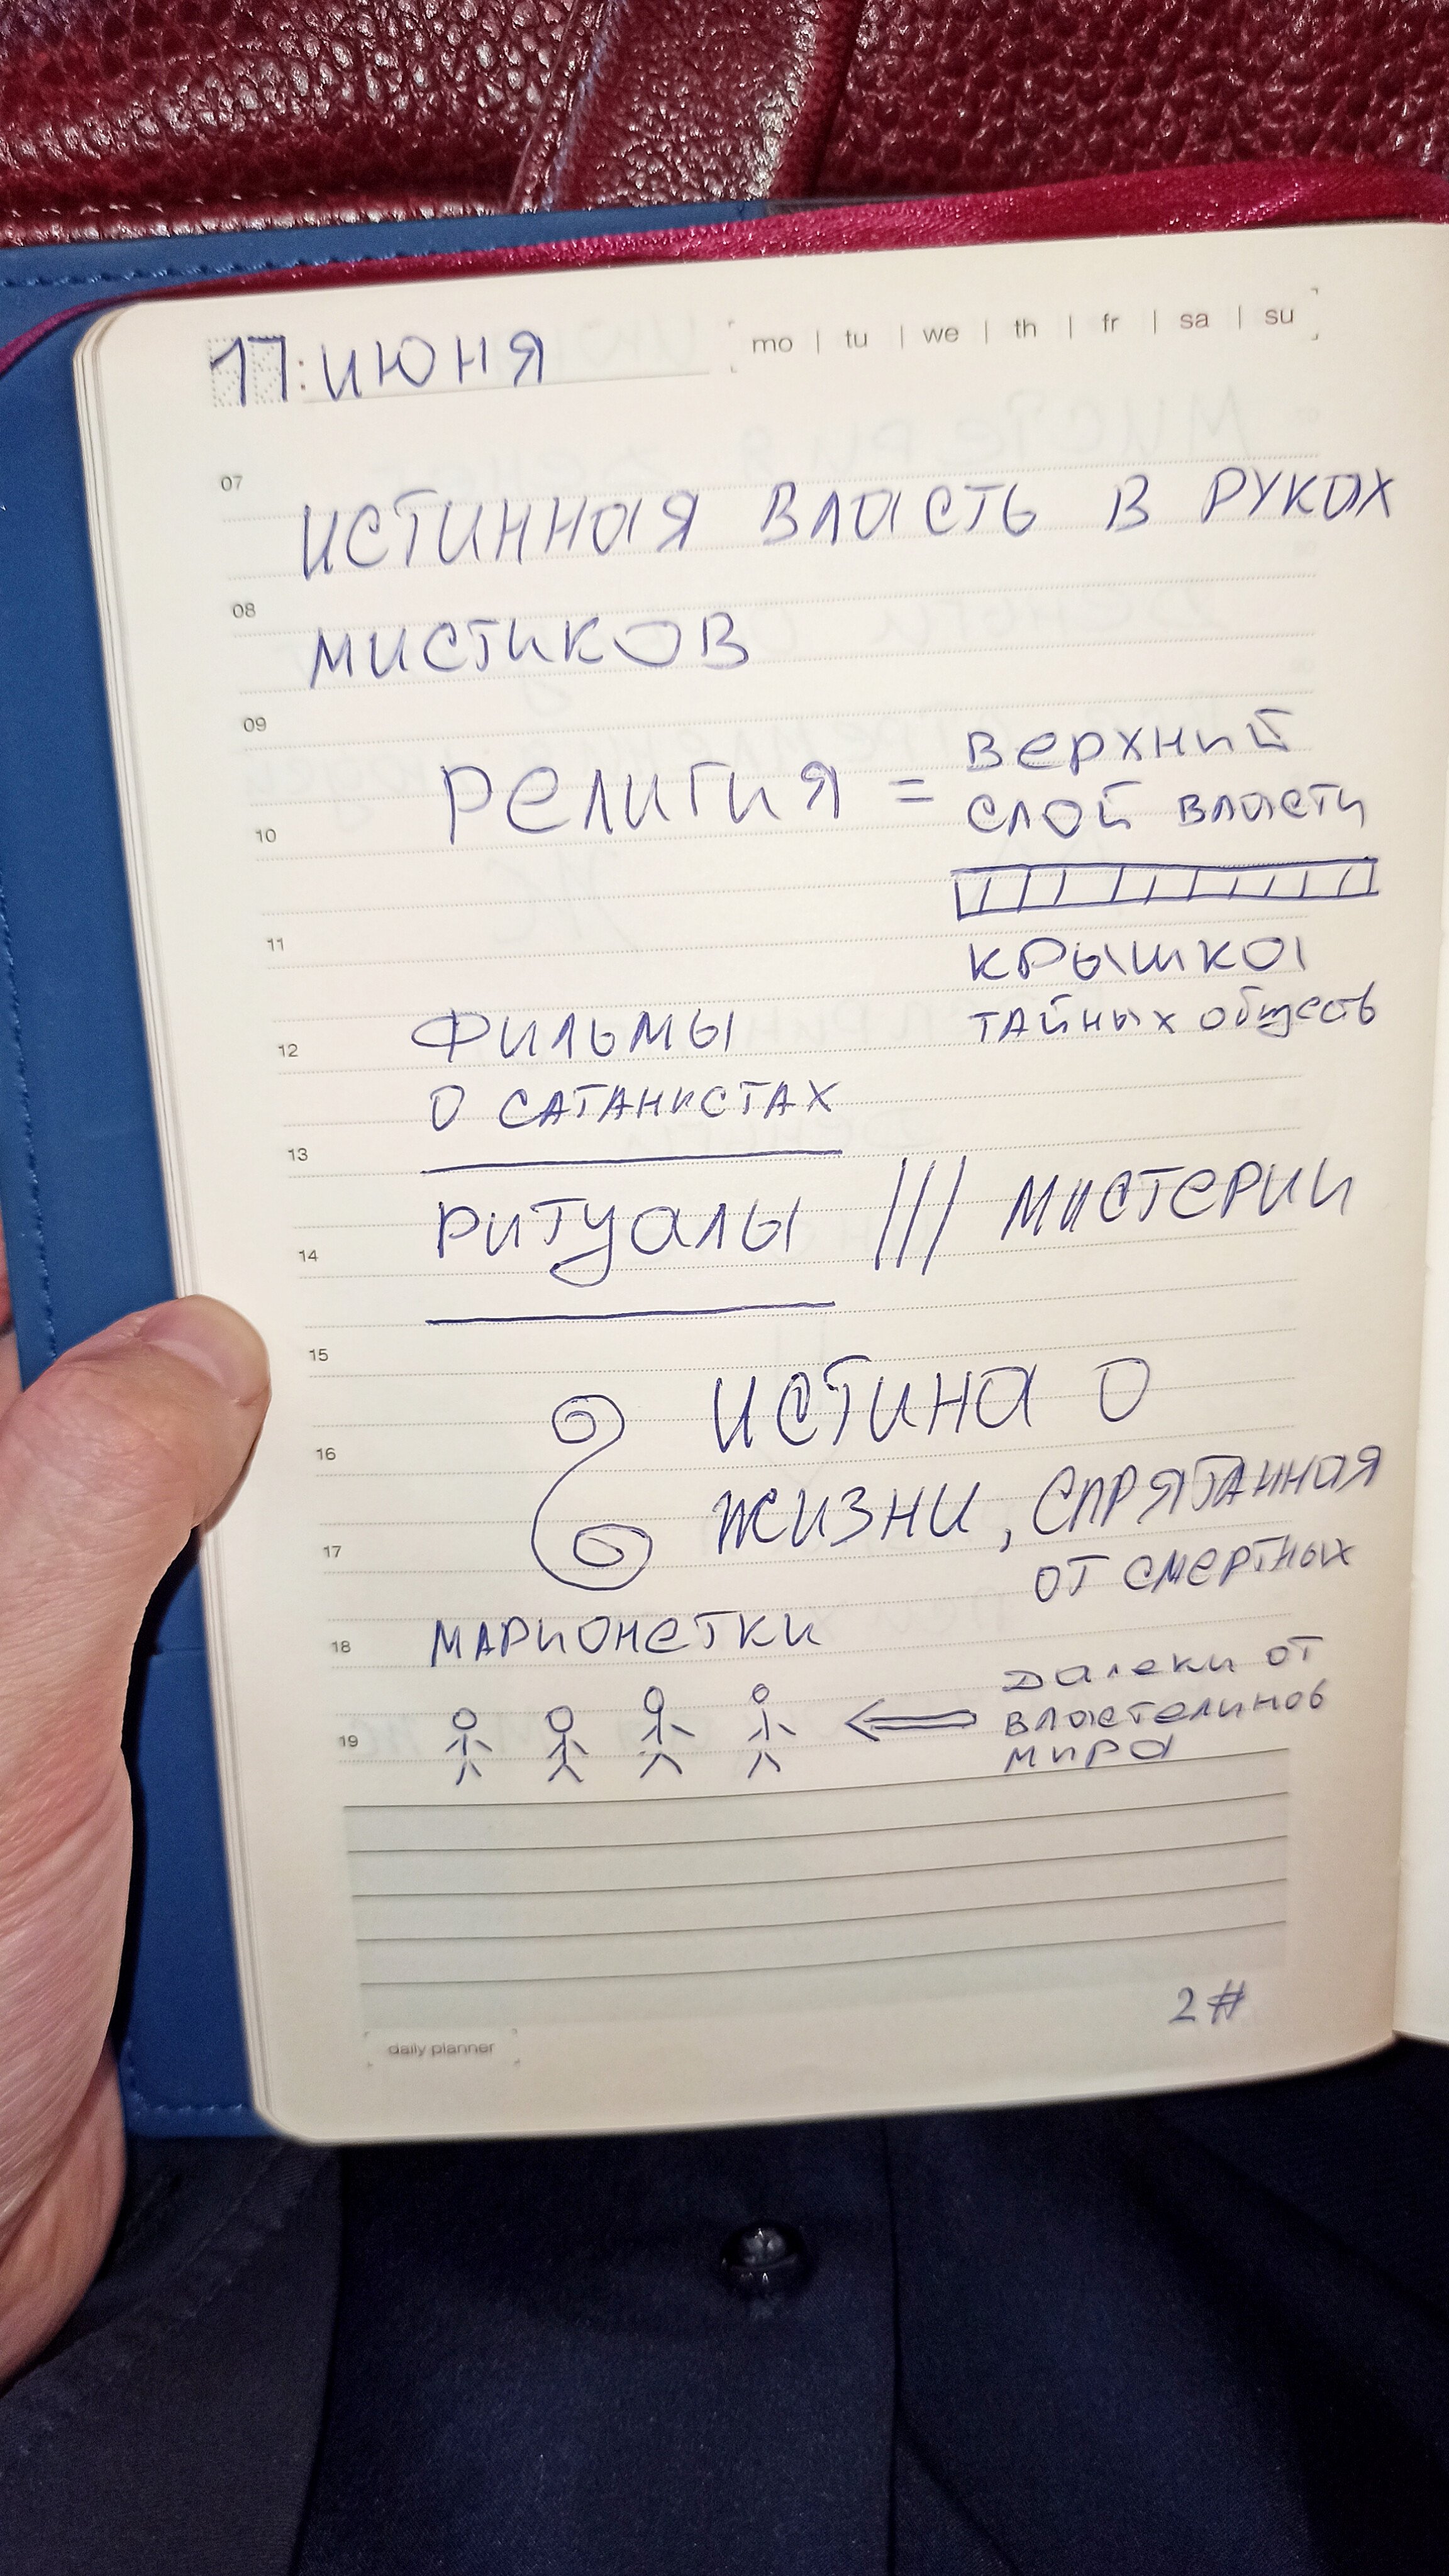 17:июня
mo | tu | we | th | fr | sa | su
07
истинная власть в руках
08
мистиков
09
религия = верхний
слой власти
10
11
крышка
тайных обществ
фильмы
12
о сатанистах
13
ритуалы /// мистерии
14
15
истина о
16
жизни, спрятанная
17
от смертных
18
марионетки
далеки от
властелинов
19
мира
2#
daily planner